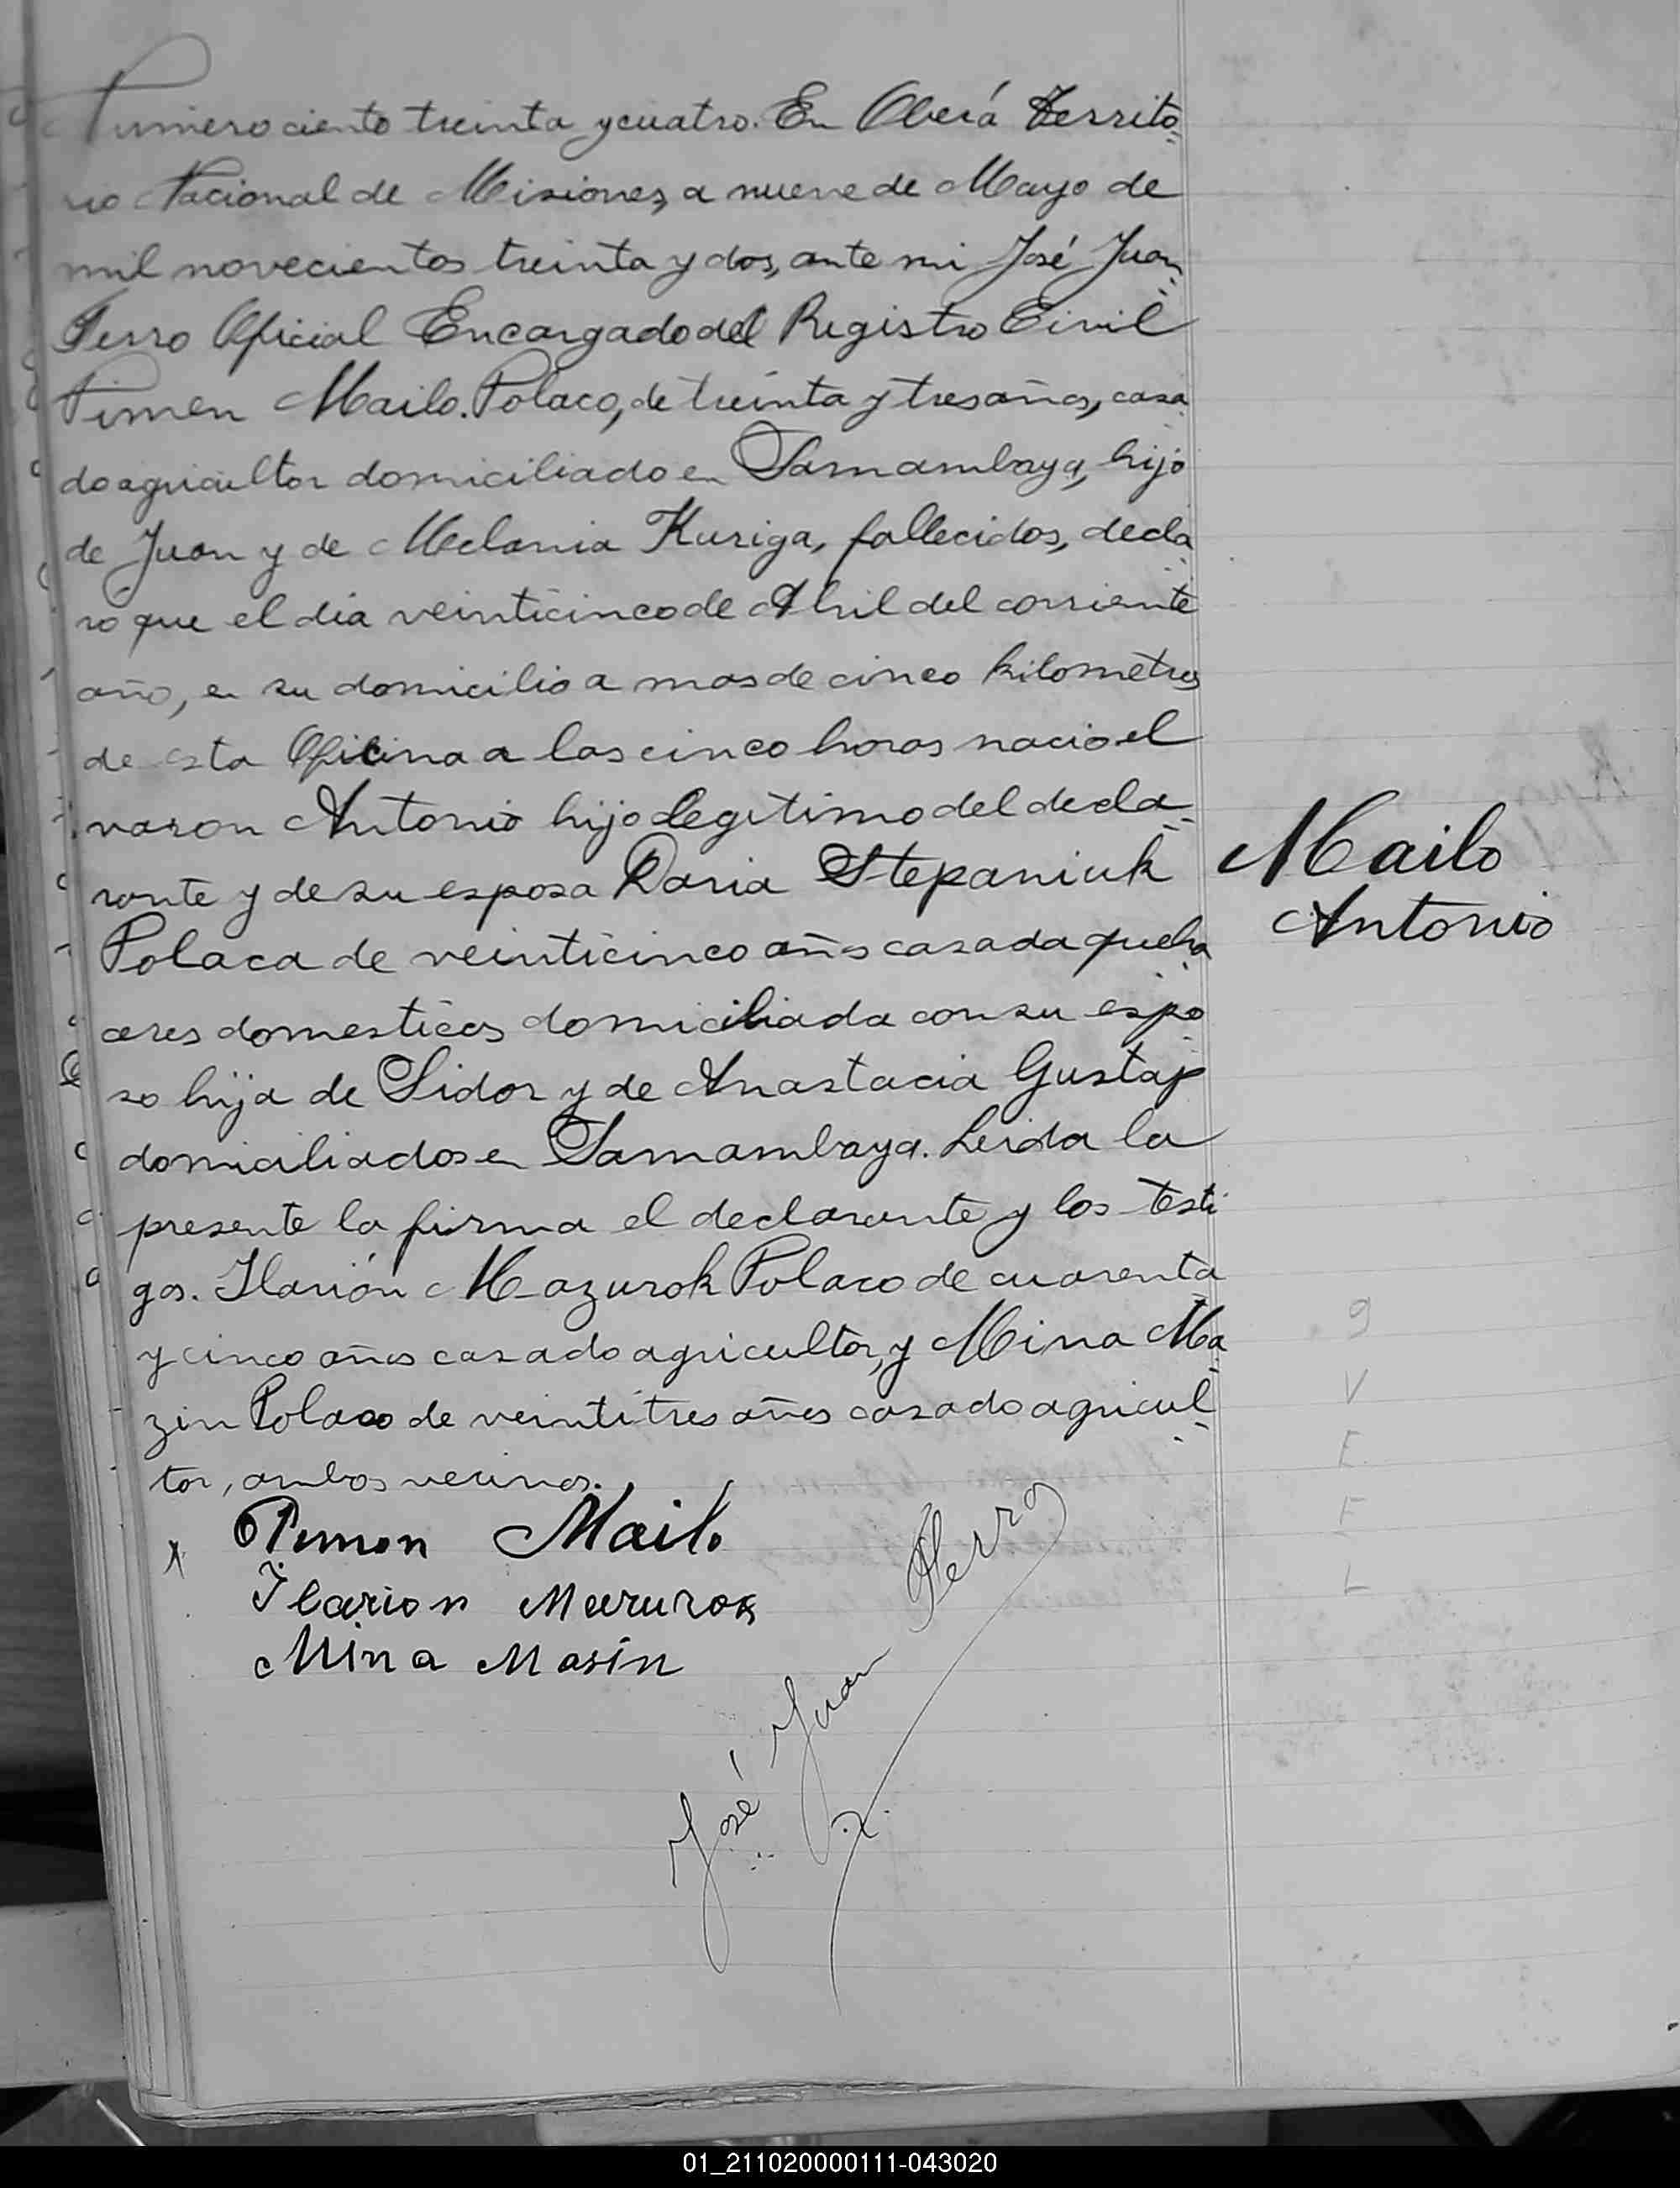 Numero ciento treinta y cuatro. En Oberá Territo
rio Nacional de Misiones, a nueve de Mayo de
mil novecientos treinta y dos, ante mi José Juan
Ferro Oficial Encargado del Registro Civil
Pimen Mailo. Polaco, de treinta y tres años, casa
do agricultor domiciliado en Samambaya, hijo
de Juan y de Melania Kuriga, fallecidos, decla
ro que el dia veinticinco de Abril del corriente
año, en su domicilio a mas de cinco kilometros
de esta Oficina a las cinco horas nacio el
varon Antonio hijo legitimo del decla
rante y de su esposa Daria Stepaniuk
Polaca de veinticinco años casada queha
ceres domesticos domiciliada con su espo
so hija de Sidor y de Anastacia Gustap
domiciliados en Samambaya. Leida la
presente la firma el declarante y los testi
gos. Ilarión Mazurok Polaco de cuarenta
y cinco años casado agricultor, y Mina Ma
zin Polaco de veintitres años casado agricul
tor, ambos vecinos.
Mailo
Antonio
Pimon Mailo
Ilarion Mazurok
Mina Masin
José Juan Ferro
9
V
F
F
L
01_211020000111-043020